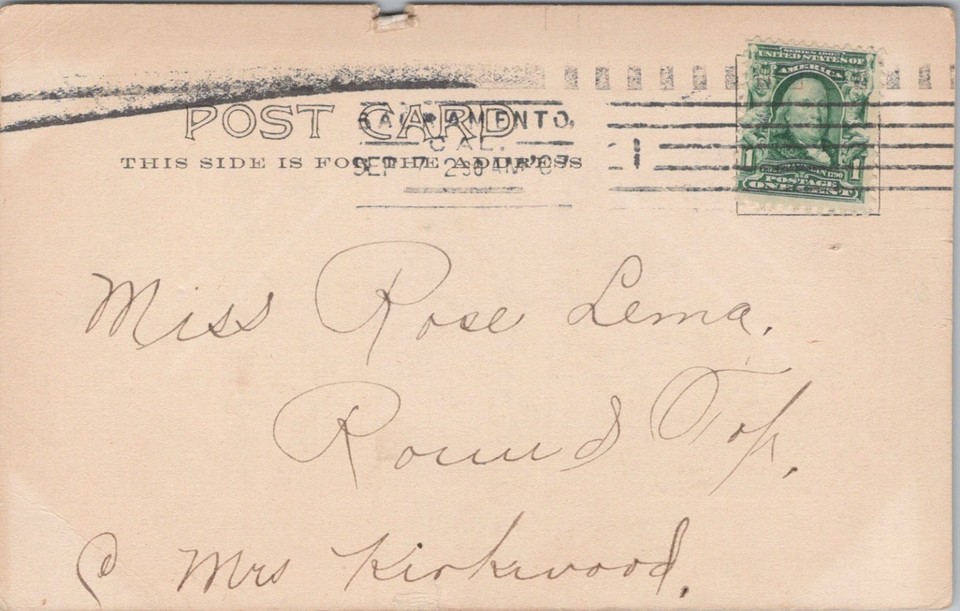 POST CARD
THIS SIDE IS FOR THE ADDRESS
SACRAMENTO,
CAL.
SEP 7 2 30 AM '07
1
SERIES 1902
UNITED STATES OF
AMERICA
1 1
POSTAGE
ONE CENT
Miss Rose Lema.
Round Top,
C Mrs Kirkwood.